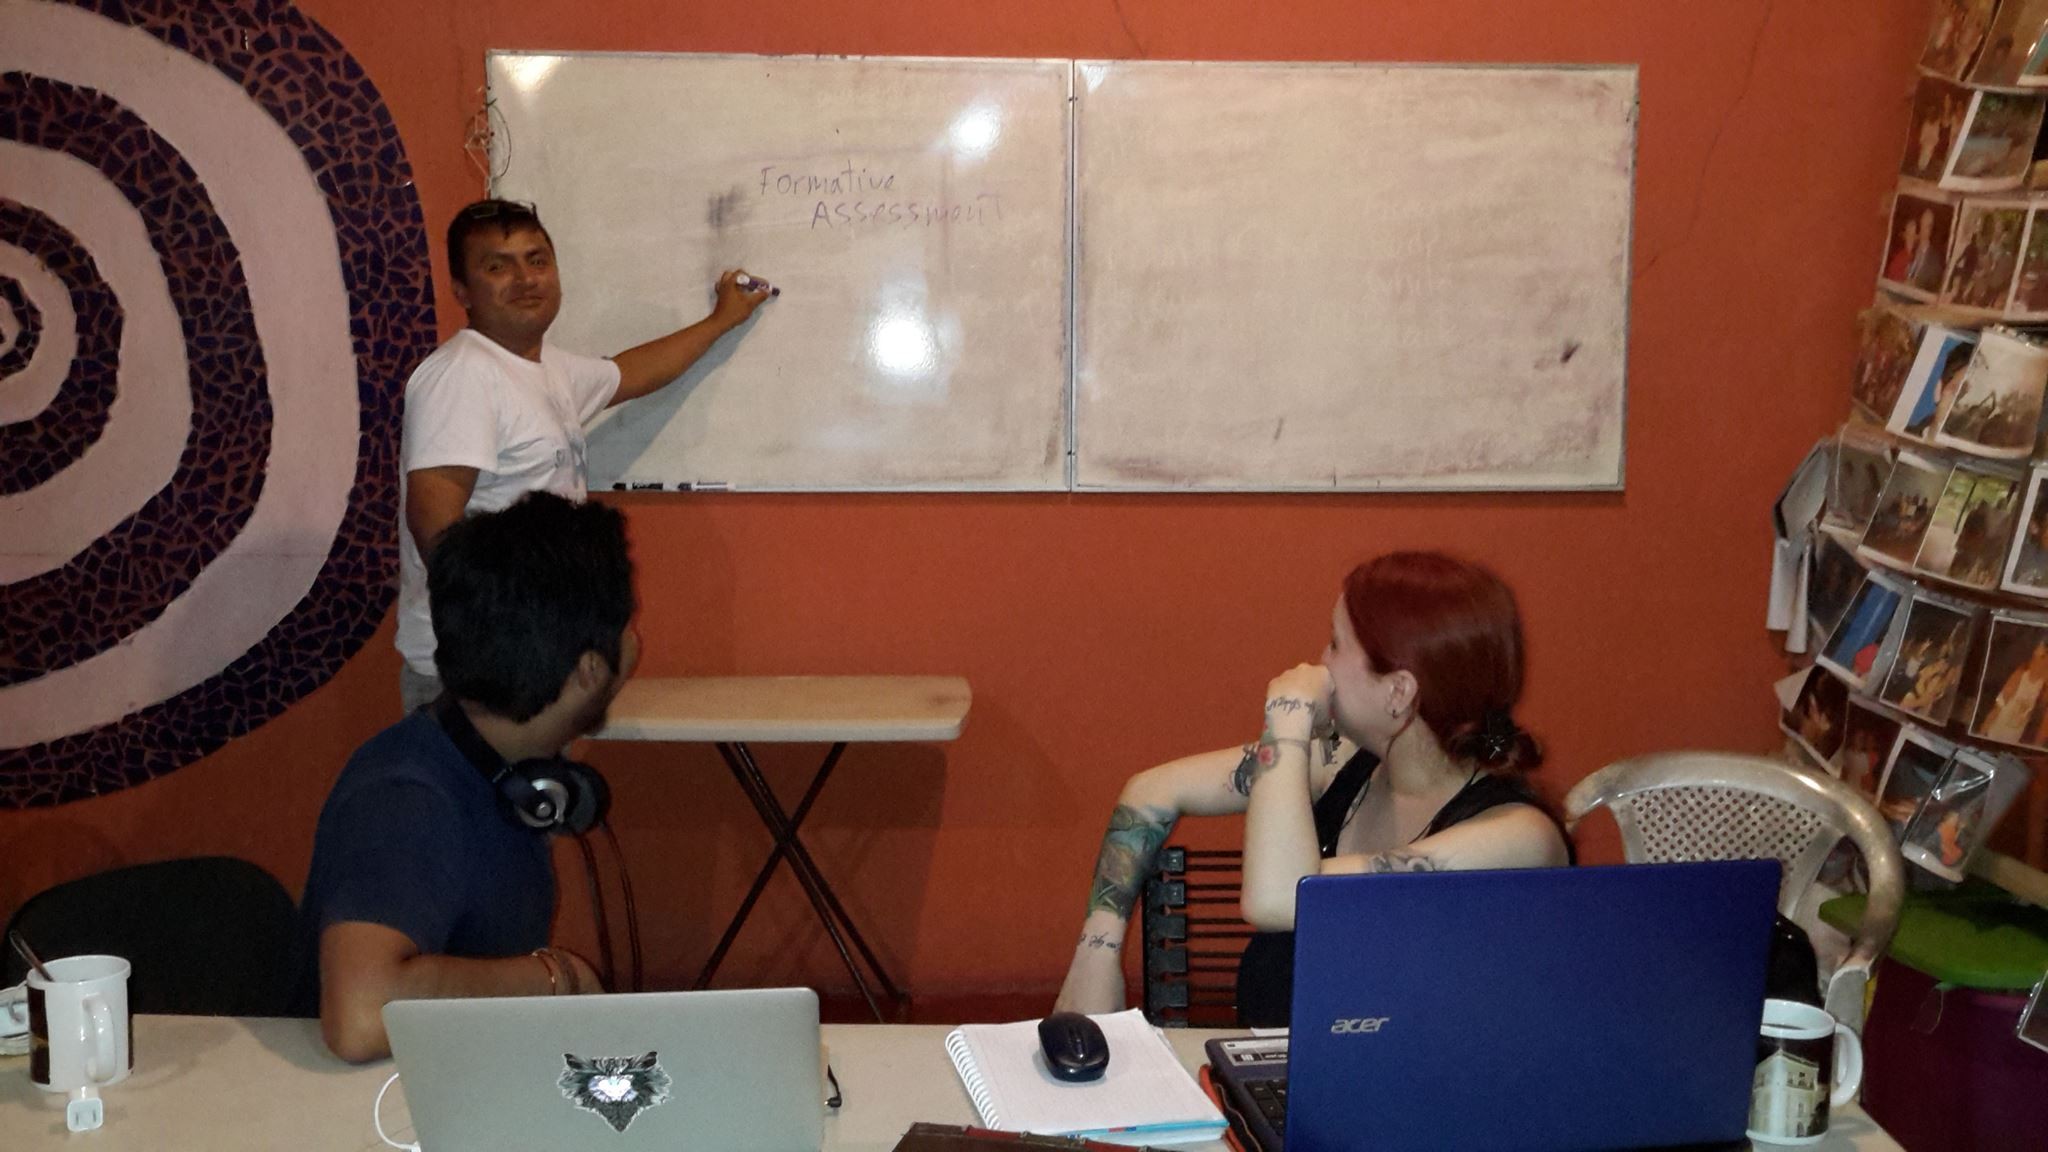 Formative
Assessment
acer